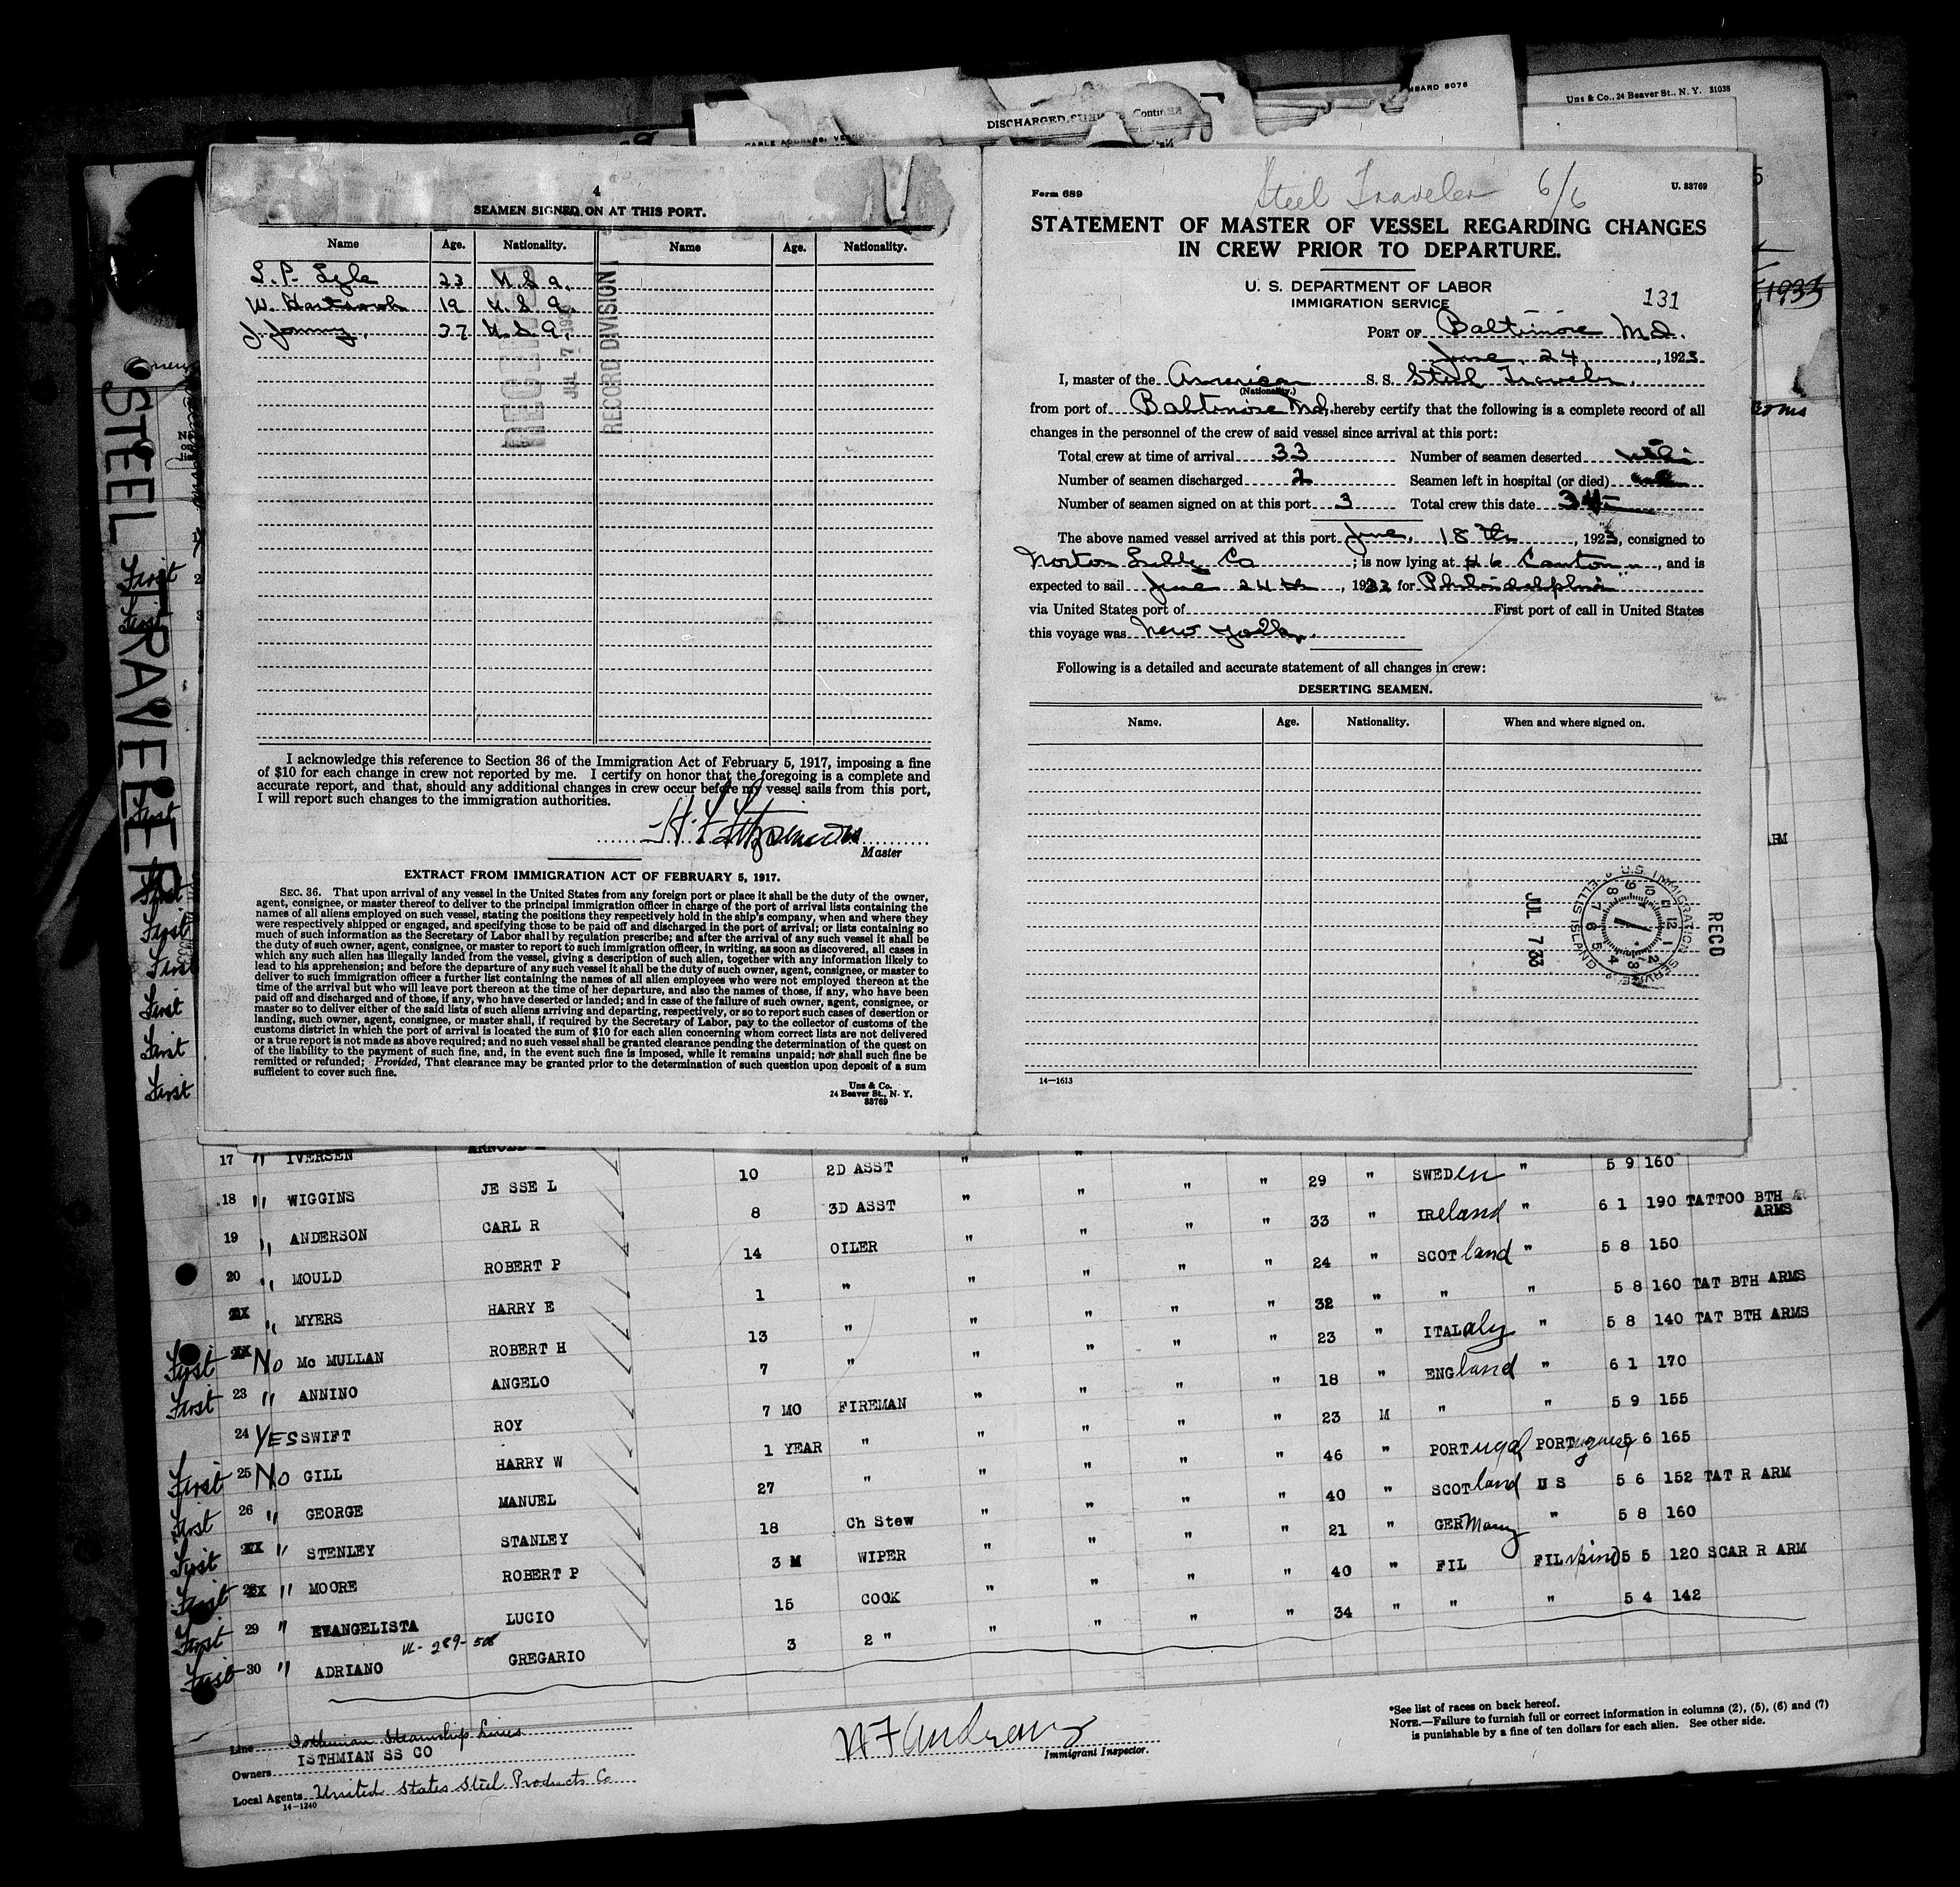 DISCHARGED
Uns & Co., 24 Beaver St., N. Y. 31038
STEEL TRAVELER
4
SEAMEN SIGNED ON AT THIS PORT.
Name Age. Nationality. Name Age. Nationality.
23 U.S.A.
19 U.S.A.
37 U.S.A.
RECEIVED
JUL 7 1933
RECORD DIVISION
I acknowledge this reference to Section 36 of the Immigration Act of February 5, 1917, imposing a fine
of $10 for each change in crew not reported by me. I certify on honor that the foregoing is a complete and
accurate report, and that, should any additional changes in crew occur before my vessel sails from this port,
I will report such changes to the immigration authorities.
Master
EXTRACT FROM IMMIGRATION ACT OF FEBRUARY 5, 1917.
SEC. 36. That upon arrival of any vessel in the United States from any foreign port or place it shall be the duty of the owner,
agent, consignee, or master thereof to deliver to the principal immigration officer in charge of the port of arrival lists containing the
names of all aliens employed on such vessel, stating the positions they respectively hold in the ship's company, when and where they
were respectively shipped or engaged, and specifying those to be paid off and discharged in the port of arrival; or lists containing so
much of such information as the Secretary of Labor shall by regulation prescribe; and after the arrival of any such vessel it shall be
the duty of such owner, agent, consignee, or master to report to such immigration officer, in writing, as soon as discovered, all cases in
which any such alien has illegally landed from the vessel, giving a description of such alien, together with any information likely to
lead to his apprehension; and before the departure of any such vessel it shall be the duty of such owner, agent, consignee, or master to
deliver to such immigration officer a further list containing the names of all alien employees who were not employed thereon at the
time of the arrival but who will leave port thereon at the time of her departure, and also the names of those, if any, who have been
paid off and discharged and of those, if any, who have deserted or landed; and in case of the failure of such owner, agent, consignee, or
master so to deliver either of the said lists of such aliens arriving and departing, respectively, or so to report such cases of desertion or
landing, such owner, agent, consignee, or master shall, if required by the Secretary of Labor, pay to the collector of customs of the
customs district in which the port of arrival is located the sum of $10 for each alien concerning whom correct lists are not delivered
or a true report is not made as above required; and no such vessel shall be granted clearance pending the determination of the quest on
of the liability to the payment of such fine, and, in the event such fine is imposed, while it remains unpaid; nor shall such fine be
remitted or refunded; Provided, That clearance may be granted prior to the determination of such question upon deposit of a sum
sufficient to cover such fine.
Uns & Co.
24 Beaver St., N. Y.
33769
Steel Traveler 6/6
Form 689 U. 33769
STATEMENT OF MASTER OF VESSEL REGARDING CHANGES
IN CREW PRIOR TO DEPARTURE.
U. S. DEPARTMENT OF LABOR
IMMIGRATION SERVICE
131
PORT OF Baltimore Md.
June 24, 1923
I, master of the American S. S. Steel Traveler.
(Nationality.)
from port of Baltimore Md. hereby certify that the following is a complete record of all
changes in the personnel of the crew of said vessel since arrival at this port:
Total crew at time of arrival 33 Number of seamen deserted
Number of seamen discharged 2 Seamen left in hospital (or died)
Number of seamen signed on at this port 3 Total crew this date 34
The above named vessel arrived at this port June 18th, 1923, consigned to
Norton Lilly Co; is now lying at #6 Canton, and is
expected to sail June 24th, 19 for Philadelphia
via United States port of First port of call in United States
this voyage was New York.
Following is a detailed and accurate statement of all changes in crew:
DESERTING SEAMEN.
Name. Age. Nationality. When and where signed on.
U.S. IMMIGRATION SERVICE ELLIS ISLAND
RECD
JUL 7 33
14—1613
17 " IVERSEN ARNOLD 10 2D ASST " " " " 29 " SWEDEN " 5 9 160
18 " WIGGINS JE SSE L 8 3D ASST " " " " 33 " IReland " 6 1 190 TATTOO BTH ARMS
19 " ANDERSON CARL R 14 OILER " " " " 24 " SCOTland " 5 8 150
20 " MOULD ROBERT P 1 " " " " " 32 " " " 5 8 160 TAT BTH ARMS
" MYERS HARRY E 13 " " " " " 23 " ITALaly " 5 8 140 TAT BTH ARMS
First No Mc MULLAN ROBERT H 7 " " " " " 18 " ENGland " 6 1 170
First 23 " ANNINO ANGELO 7 MO FIREMAN " " " " 23 M " " 5 9 155
24 YES SWIFT ROY 1 YEAR " " " " " 46 " PORTugal PORTuguese 5 6 165
First 25 No GILL HARRY W 27 " " " " " 40 " SCOTland U S 5 6 152 TAT R ARM
First 26 " GEORGE MANUEL 18 Ch Stew " " " " 21 " GERMany " 5 8 160
First " STENLEY STANLEY 3 M WIPER " " " " 40 " FIL FILipino 5 5 120 SCAR R ARM
First 28 " MOORE ROBERT P 15 COOK " " " " 34 " " " 5 4 142
First 29 " EVANGELISTA LUCIO 3 2 " " "
First 30 " ADRIANO GREGARIO
Line Isthmian Steamship Lines
Owners ISTHMIAN SS CO
Local Agents United States Steel Products Co
14—1240
Immigrant Inspector.
*See list of races on back hereof.
NOTE.—Failure to furnish full or correct information in columns (2), (5), (6) and (7)
is punishable by a fine of ten dollars for each alien. See other side.